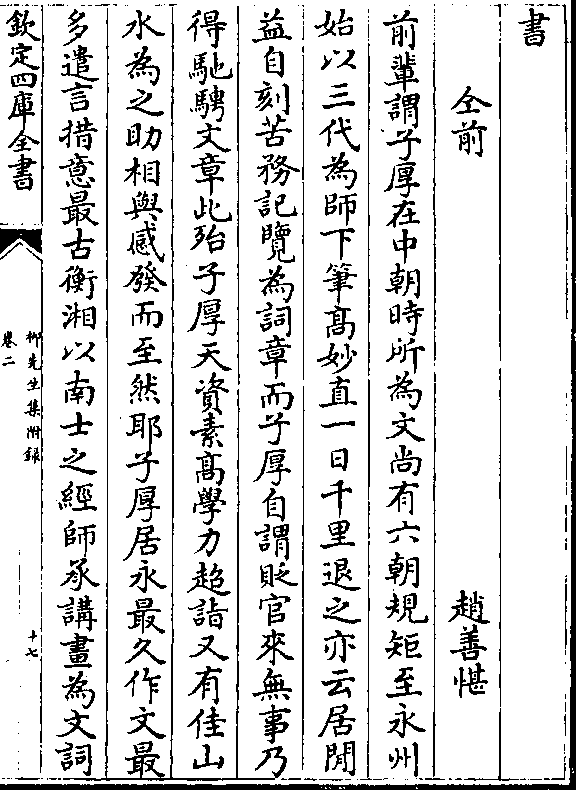 書
仝前
趙善愖
前輩謂子厚在中朝時所為文尚有六朝規矩至永州
始以三代為師下筆髙妙直一日千里退之亦云居閒
益自刻苦務記覽為詞章而子厚自謂貶官來無事乃
得馳騁文章此殆子厚天資素髙學力超詣又有佳山
水為之助相與感發而至然耶子厚居永最久作文最
多遣言措意最古衡湘以南士之經師承講畫為文詞
欽定四庫全書
柳先生集附録
卷二
十七